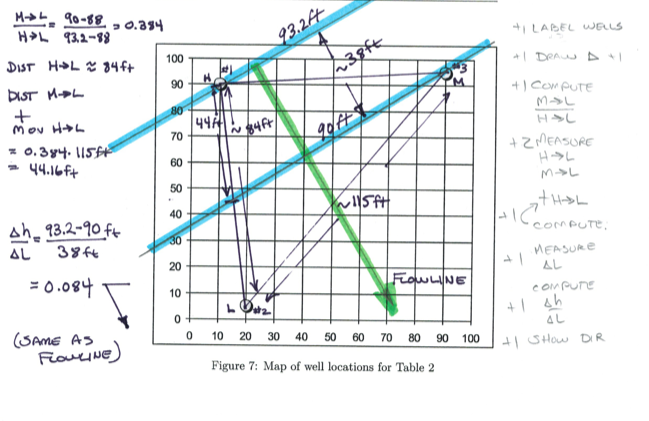 M→L / H→L = 90-88 / 93.2-88 = 0.384
DIST H→L ≈ 84ft
DIST M→L
+
MOV H→L
= 0.384 · 115ft
= 44.16ft
Δh / ΔL = 93.2-90 ft / 38ft
= 0.084
(SAME AS
FLOWLINE)
93.2ft
~38ft
90ft
H #1
#3
M
44ft
~84ft
~115ft
FLOWLINE
L #2
100
90
80
70
60
50
40
30
20
10
0
0 10 20 30 40 50 60 70 80 90 100
Figure 7: Map of well locations for Table 2
+1 LABEL WELLS
+1 DRAW Δ +1
+1 COMPUTE
M→L
H→L
+2 MEASURE
H→L
M→L
+H→L
+1 COMPUTE;
+1 MEASURE
ΔL
+1 COMPUTE
Δh
ΔL
+1 SHOW DIR